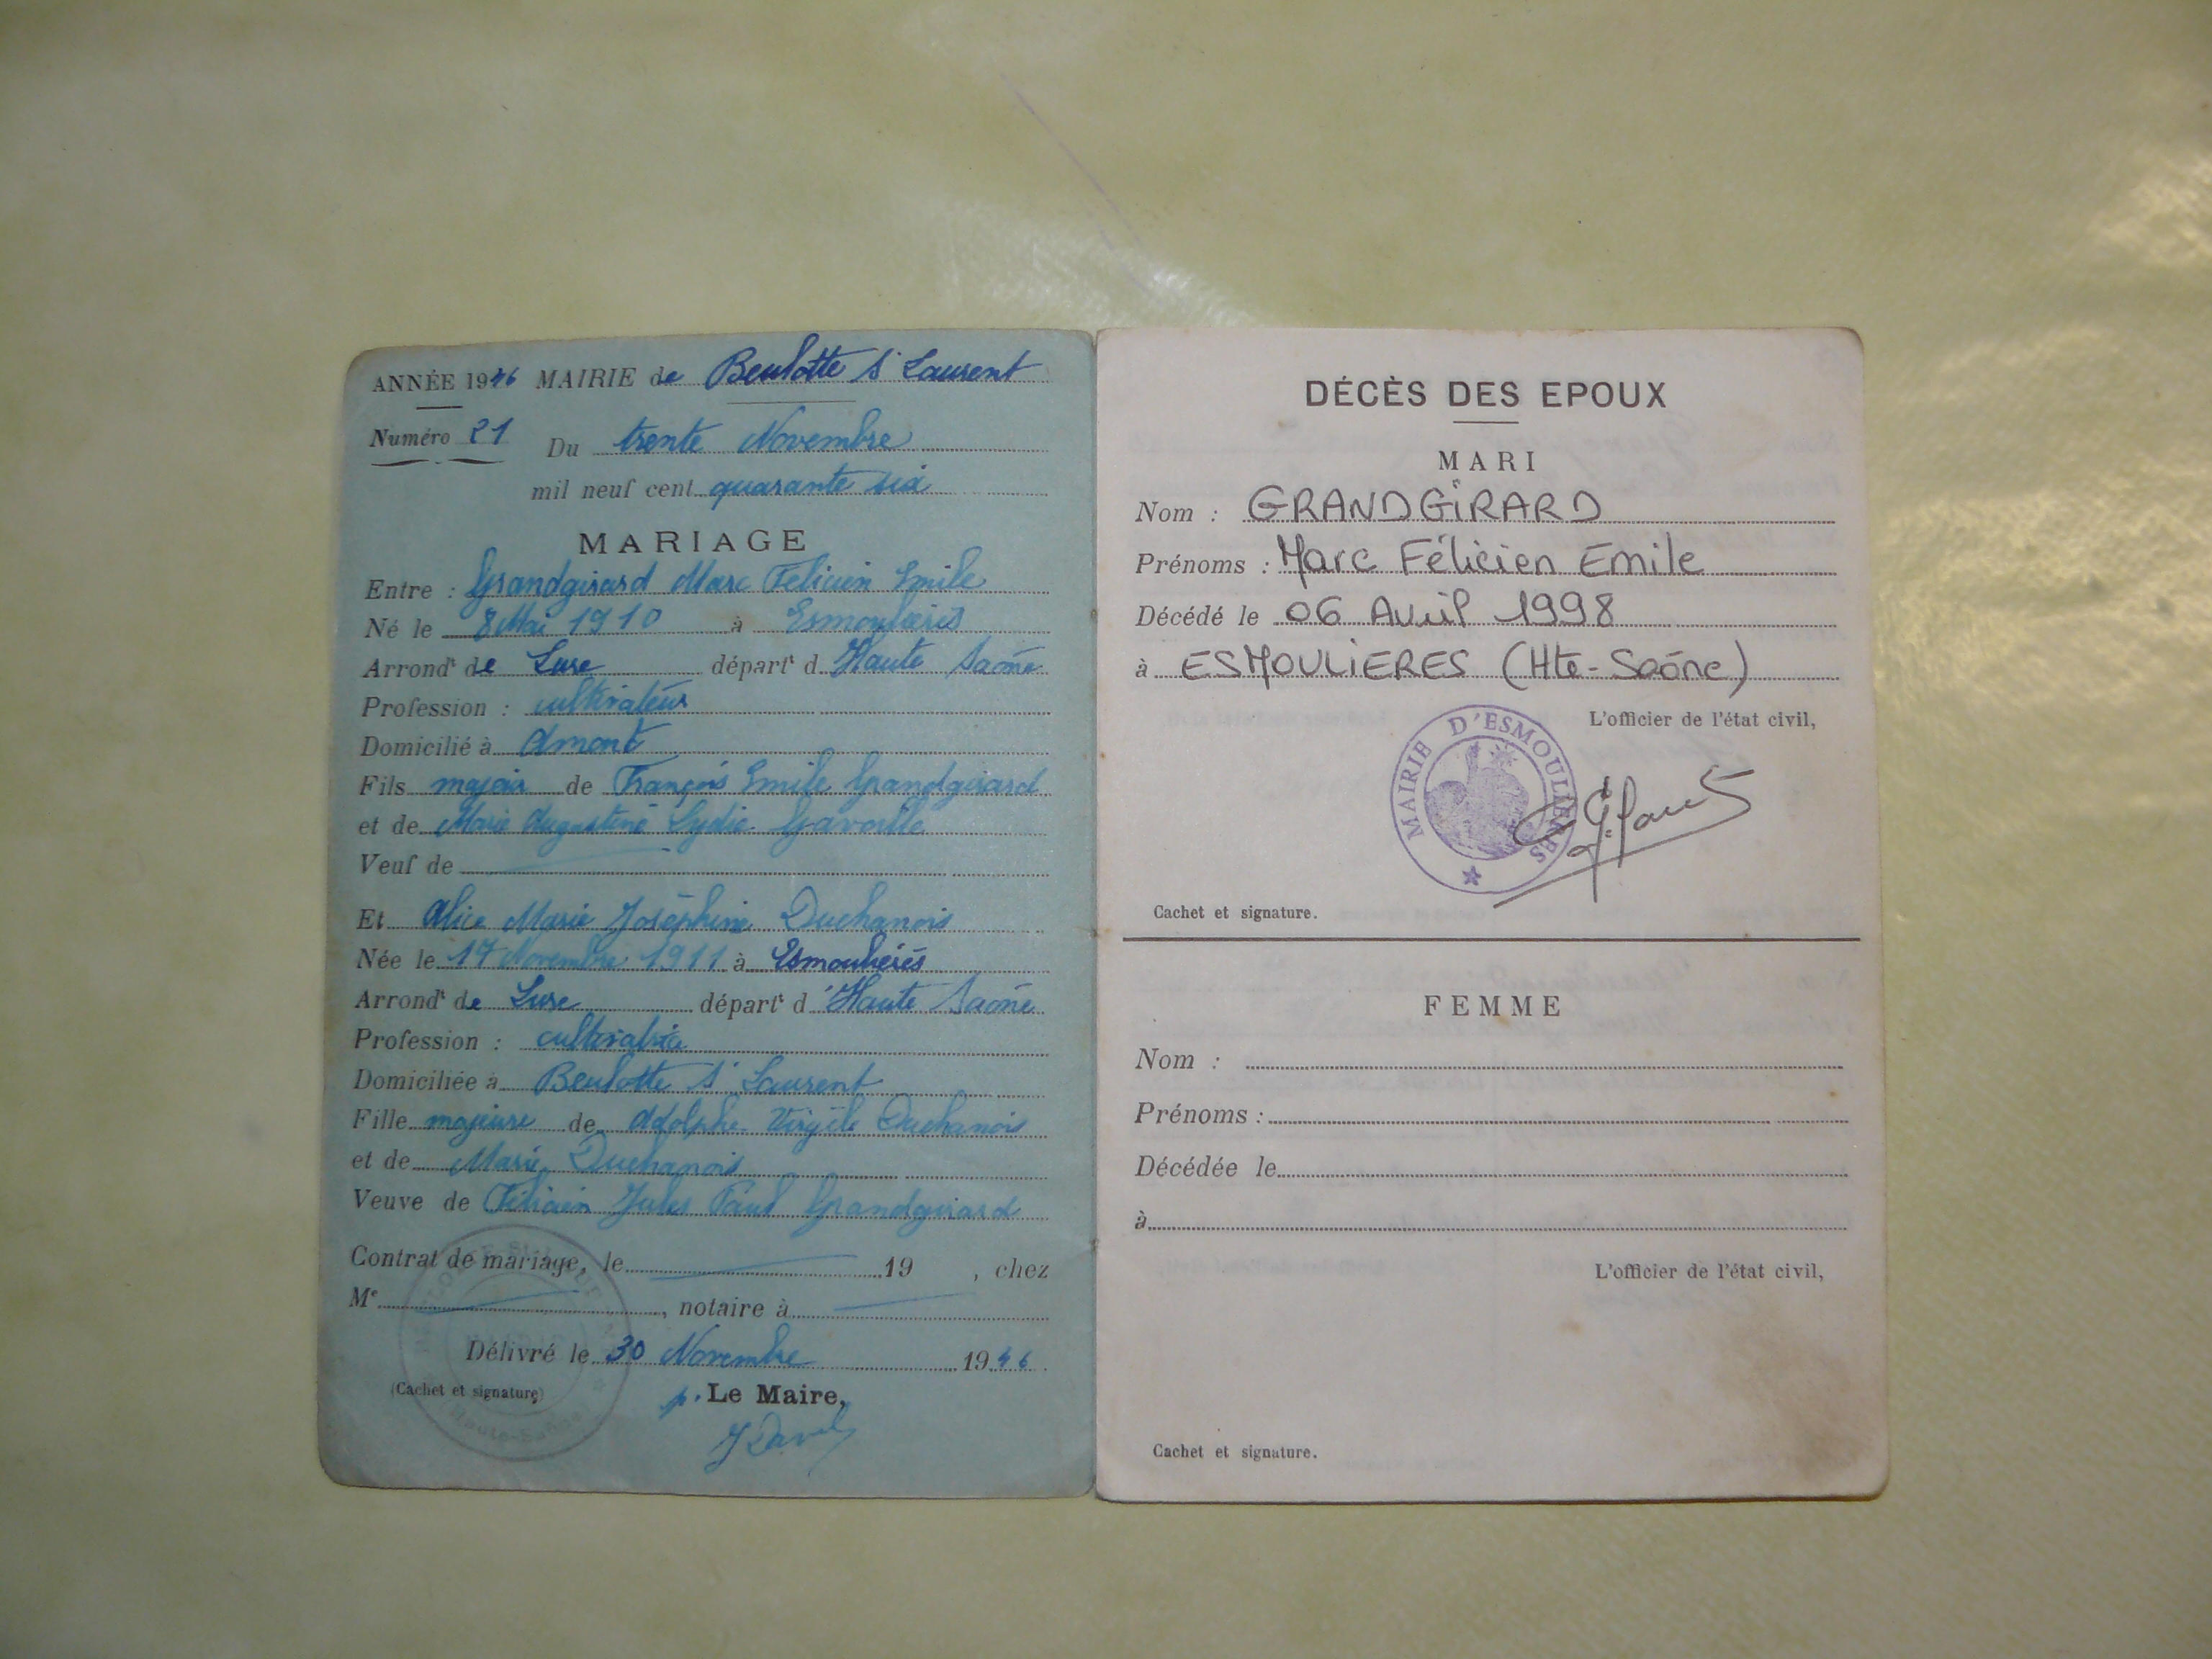 ANNÉE 1946 MAIRIE de Beulotte St Laurent
Numéro 21 Du trente Novembre
mil neuf cent quarante six
MARIAGE
Entre : Grandgirard Marc Felicien Emile
Né le 8 Mai 1910 à Esmoulières
Arrondt de Lure départt d Haute Saône
Profession : cultivateur
Domicilié à Amont
Fils majeur de François Emile Grandgirard
et de Marie Augustine Lydie
Veuf de
Et Alice Marie Joséphine Duchanois
Née le 17 Novembre 1911 à Esmoulières
Arrondt de Lure départt d Haute Saône
Profession : cultivatrice
Domiciliée à Beulotte St Laurent
Fille majeure de Adolphe Virgile Duchanois
et de Marie Duchanois
Veuve de Félicien Jules Paul Grandgirard
Contrat de mariage, le 19 , chez
Me , notaire à
Délivré le 30 Novembre 1946.
(Cachet et signature) p. Le Maire,
DÉCÈS DES EPOUX
MARI
Nom : GRANDGIRARD
Prénoms : Marc Félicien Emile
Décédé le 06 Avril 1998
à ESMOULIERES (Hte-Saône)
L'officier de l'état civil,
MAIRIE D'ESMOULIERES
Cachet et signature.
FEMME
Nom :
Prénoms :
Décédée le
à
L'officier de l'état civil,
Cachet et signature.